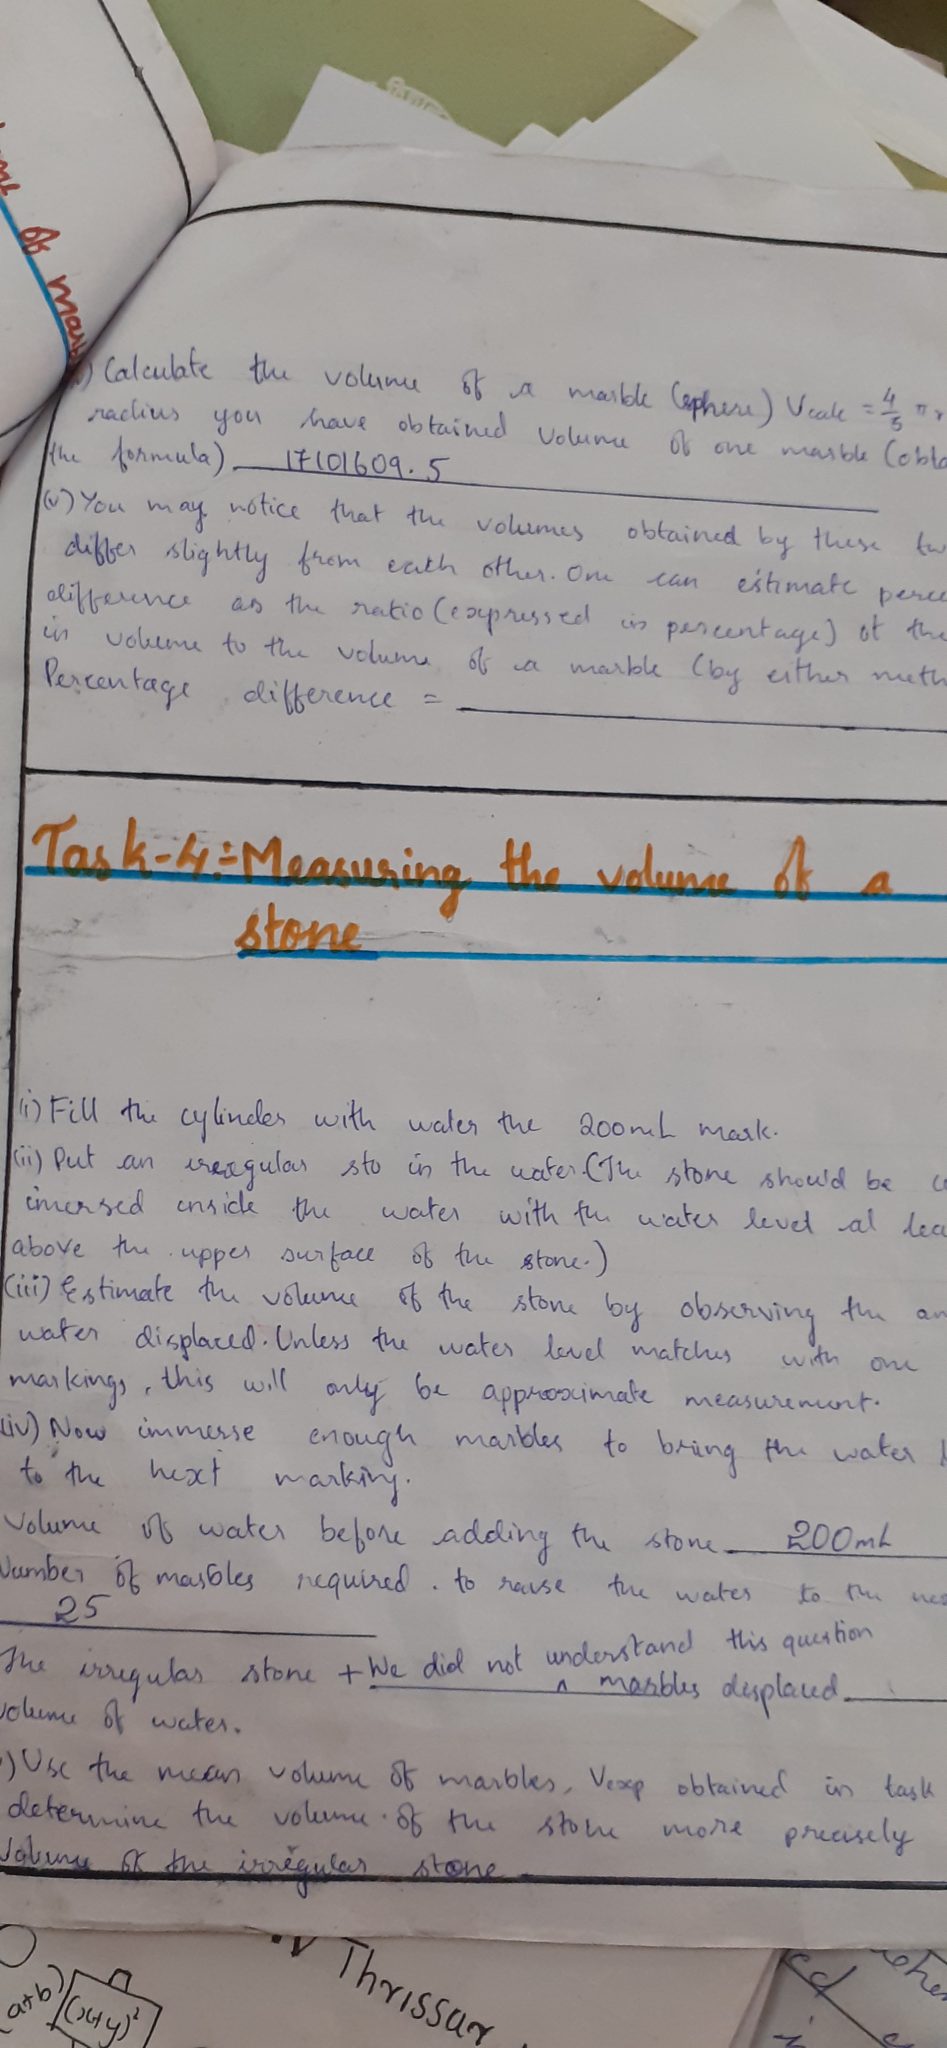 of mar
) Calculate the volume of a marble (sphere) Vcalc = 4/3 π r
radius you have obtained volume of one marble (obta
the formula) 17101609.5
(v) You may notice that the volumes obtained by these tw
differ slightly from eath other. One can estimate perce
difference as the ratio (expressed in percentage) of the
in volume to the volume of a marble (by either meth
Percentage difference =
Task-4:-Measuring the volume of a
stone
(i) Fill the cylinder with water the 200mL mark.
(ii) Put an irregular sto in the water. (The stone should be c
imersed inside the water with the water level at lea
above the upper surface of the stone.)
(iii) Estimate the volume of the stone by observing the am
water displaced. Unless the water level matches with one
markings, this will only be approximate measurement.
(iv) Now immerse enough marbles to bring the water l
to the next marking.
Volume of water before adding the stone 200mL
Number of marbles required . to raise the water to the nex
25
The irregular stone + We did not understand this question ^ marbles displaced
volume of water.
) Use the mean volume of marbles, Vexp obtained in task
determine the volume of the stone more precisely
Volume of the irregular stone
(a+b)
(x+y)²
Thrissur